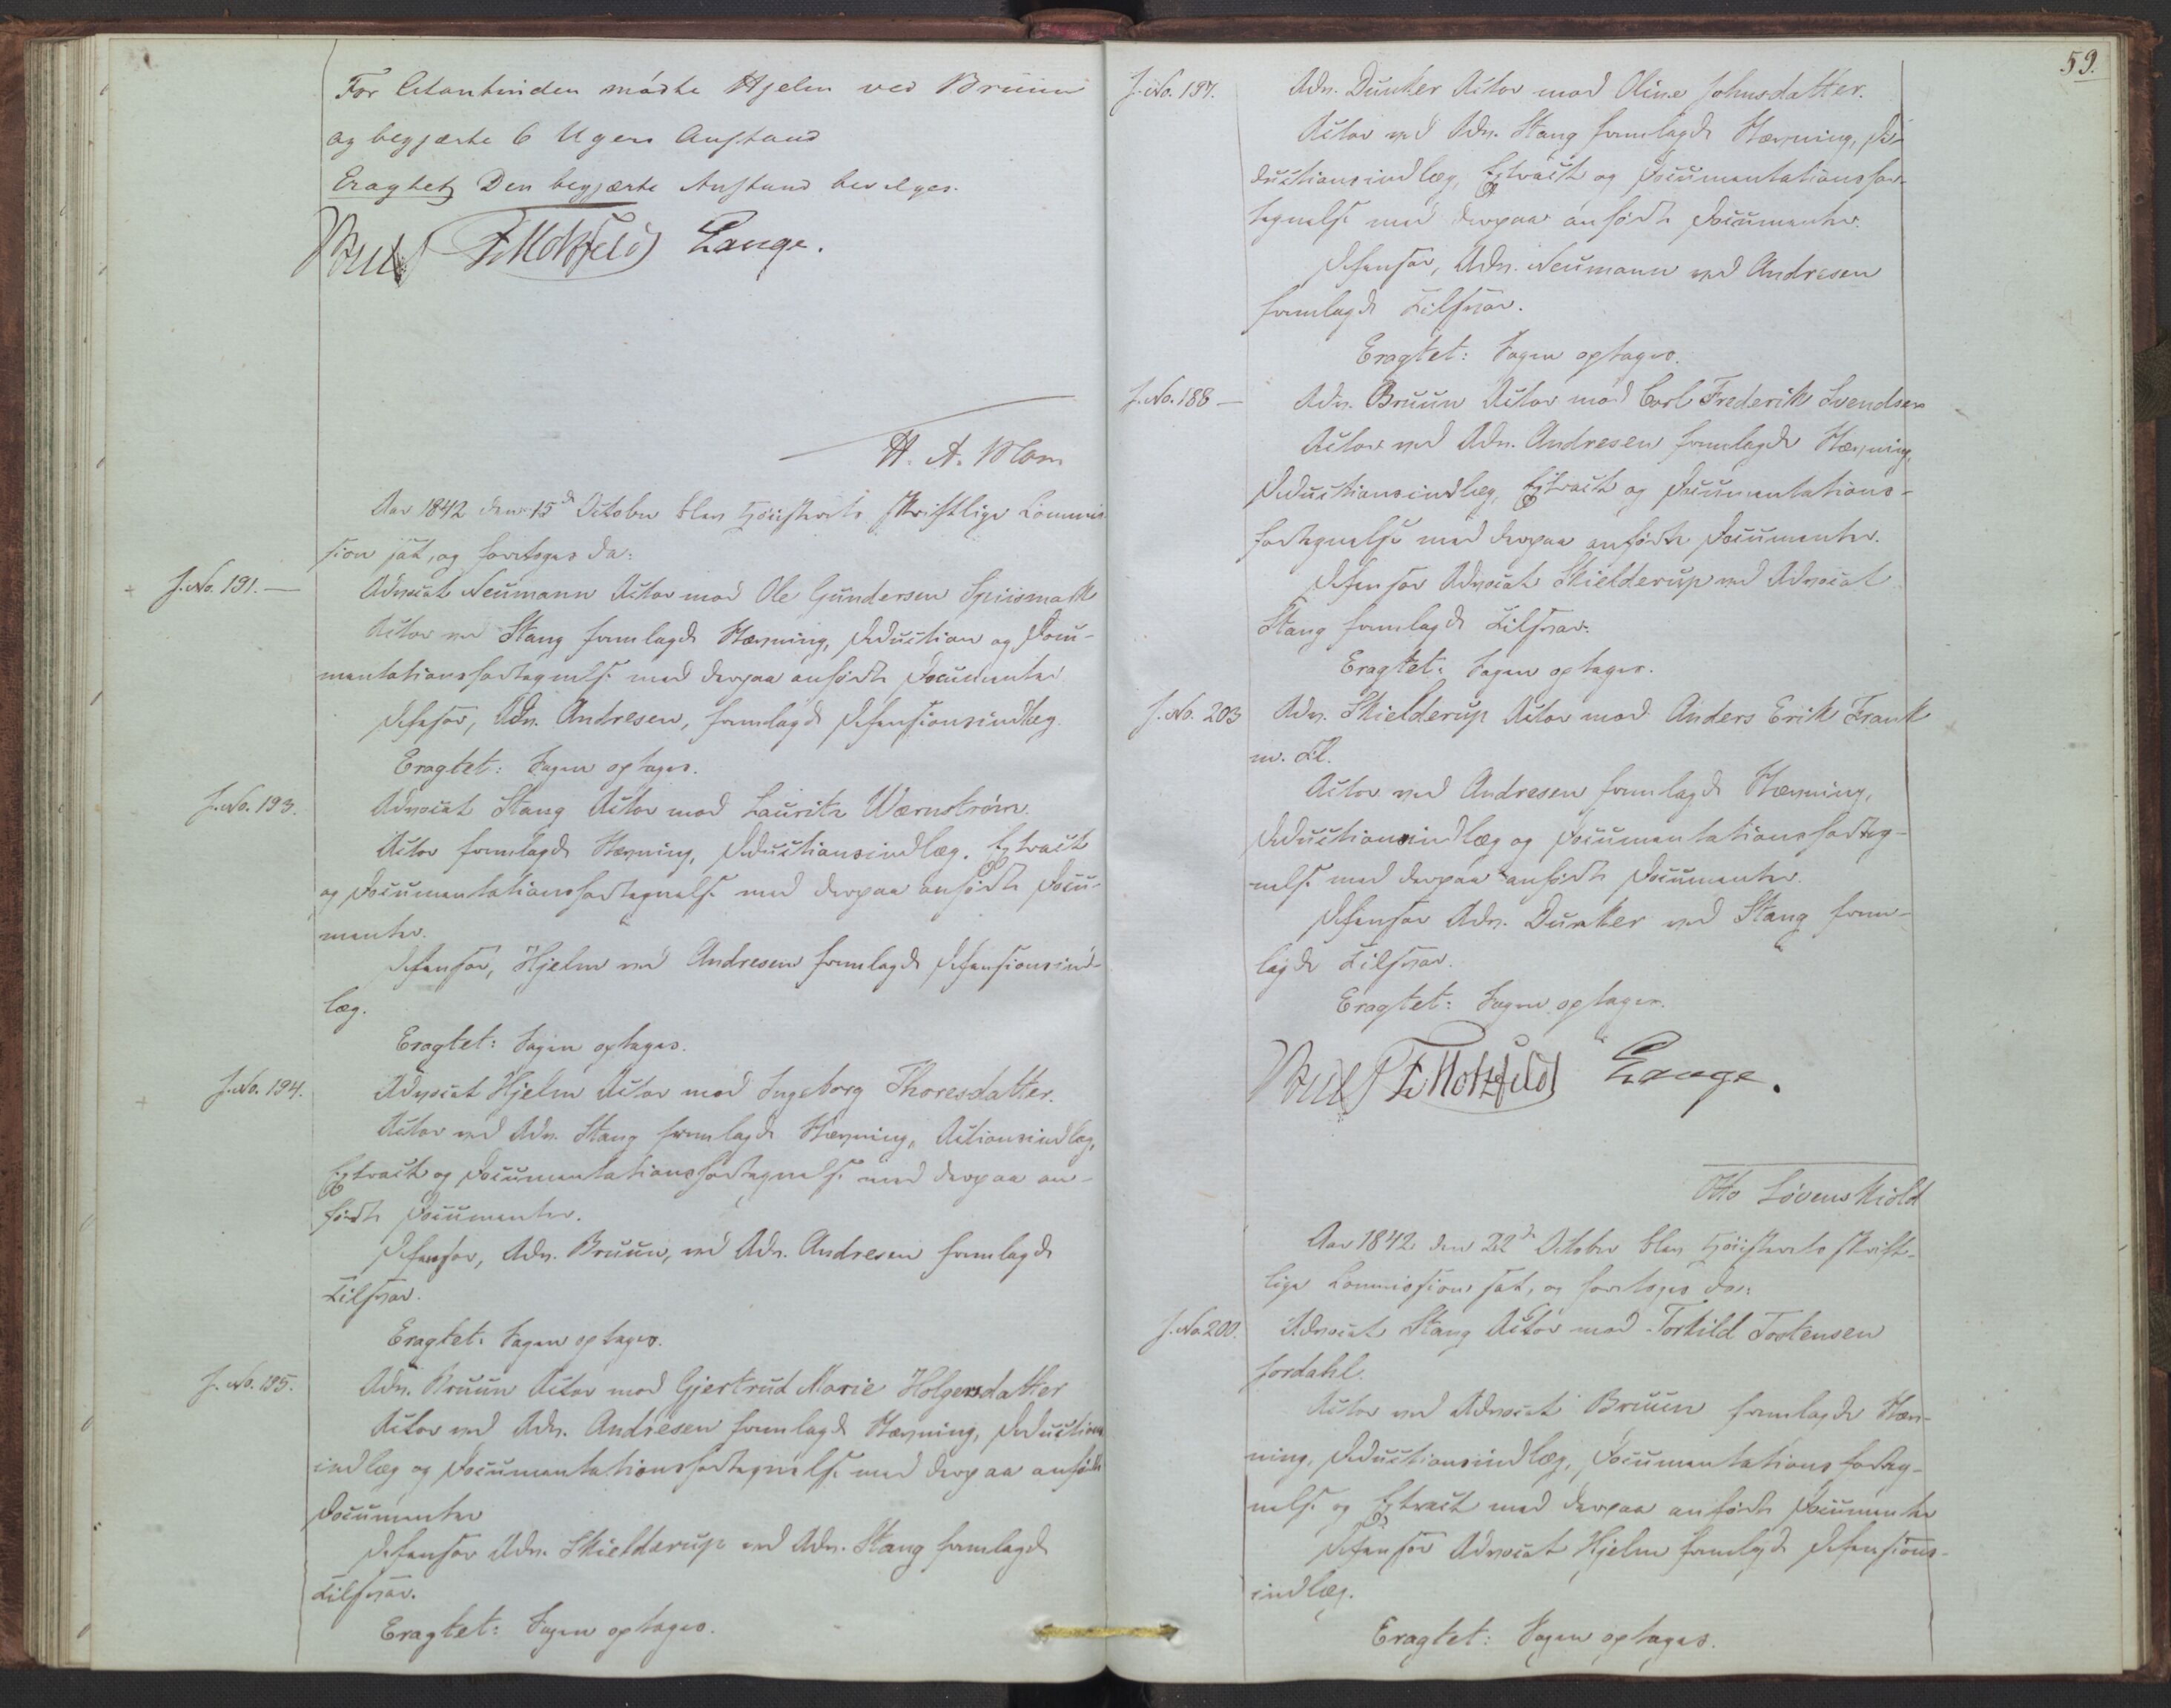 For Citantinden mødte Hjelm ved Bruun
og begjærte 6 Ugers Anstand
Eragtet, Den begjærte Anstand bevilges.
F Motzfeldt Lange.
H. A.
Aar 1842 den 15de October blev Høiesterets skriftlige Commis-
sion sat, og foretoges da:
J. No. 191. —
Advocat Neumann Actor mod Ole Gundersen Spiismark
Actor ved Stang fremlagde Stævning, Deduction og Docu-
mentationsfortegnelse med derpaa anførte Documenter
Defensor, Adv. Andresen, fremlagde Defensionsindlæg.
Eragtet: Sagen optages.
J. No. 193.
Advocat Stang Actor mod Lauritz Wærnstrøm.
Actor fremlagde Stævning, Deductionsindlæg, Extract
og Documentationsfortegnelse med derpaa anførte Docu-
menter.
Defensor, Hjelm ved Andresen fremlagde Defensionsind-
læg.
Eragtet: Sagen optages.
J. No. 194.
Advocat Hjelm Actor mod Ingeborg Thoresdatter.
Actor ved Adv. Stang fremlagde Stævning, Actionsindlæg,
Extract og Documentationsfortegnelse med derpaa an-
førte Documenter.
Defensor, Adv. Bruun, ved Adv. Andresen fremlagde
Tilsvar.
Eragtet: Sagen optages.
J. No. 195.
Adv. Bruun Actor mod Gjertrud Marie Holgersdatter
Actor ved Adv. Andresen fremlagde Stævning, Deductions
indlæg og Documentationsfortegnelse med derpaa anførte
Documenter
Defensor Adv. Skielderup ved Adv. Stang fremlagde
Tilsvar.
Eragtet: Sagen optages.
59.
J. No. 197.
Adv. Dunker Actor mod Oline Johnsdatter.
Actor ved Adv. Stang fremlagde Stævning, De-
ductionsindlæg, Extract og Documentationsfor-
tegnelse med derpaa anførte Documenter.
Defensor, Adv. Neumann ved Andresen
fremlagde Tilsvar.
Eragtet: Sagen optages.
J. No. 188 —
Adv. Bruun Actor mod Carl Frederik Svendsen
Actor ved Adv. Andresen fremlagde Stævning,
Deductionsindlæg, Extract og Documentations-
fortegnelse med derpaa anførte Documenter.
Defensor Advocat Skielderup ved Advocat
Stang fremlagde Tilsvar.
Eragtet: Sagen optages.
J. No. 203
Adv. Skielderup Actor mod Anders Erik Frank
m. fl.
Actor ved Andresen fremlagde Stævning,
Deductionsindlæg og Documentationsforteg-
nelse med derpaa anførte Documenter.
Defensor Adv. Dunker ved Stang frem-
lagde Tilsvar.
Eragtet: Sagen optages.
F Motzfeldt Lange.
Otto Løvenskiold
Aar 1842 den 22de October blev Høiesterets skrift-
lige Commission sat, og foretoges da:
J. No 200.
Advocat Stang Actor mod Torkild Tostensen
Fordahl.
Actor ved Advocat Bruun fremlagde Stæv-
ning, Deductionsindlæg, Documentationsforteg-
nelse og Extract med derpaa anførte Documenter
Defensor Advocat Hjelm fremlagde Defensions-
indlæg.
Eragtet: Sagen optages.